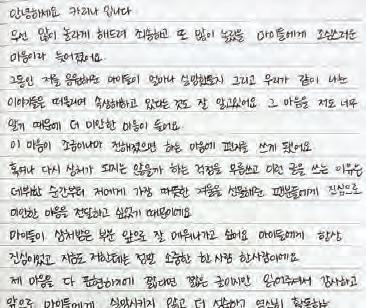 안녕하세요 카리나 입니다
우선 많이 놀라게 해드려 죄송하고 또 많이 놀랐을 마이들에게 조심스러운
마음이라 늦어졌어요.
그동안 저를 응원해준 마이들이 얼마나 실망했을지 그리고 우리가 같이 나눈
이야기들을 떠올리며 속상해하고 있다는 것도 잘 알고있어요 그 마음을 저도 너무
알기 때문에 더 미안한 마음이 들어요.
이 마음이 조금이나마 전해졌으면 하는 마음에 편지를 쓰게 됐어요
혹여나 다시 상처가 되지는 않을까 하는 걱정을 무릅쓰고 이런 글을 쓰는 이유는
데뷔한 순간부터 저에게 가장 따뜻한 겨울을 선물해준 팬분들에게 진심으로
미안한 마음을 전달하고 싶었기 때문이에요
마이들이 상처받은 부분 앞으로 잘 메워나가고 싶어요 마이들에게 항상
진심이었고 지금도 저한테는 정말 소중한 한 사람 한사람이에요
제 마음을 다 표현하기에 짧다면 짧은 글이지만 읽어주셔서 감사하고
앞으로 마이들에게 실망시키지 않고 더 성숙하고 열심히 활동하는